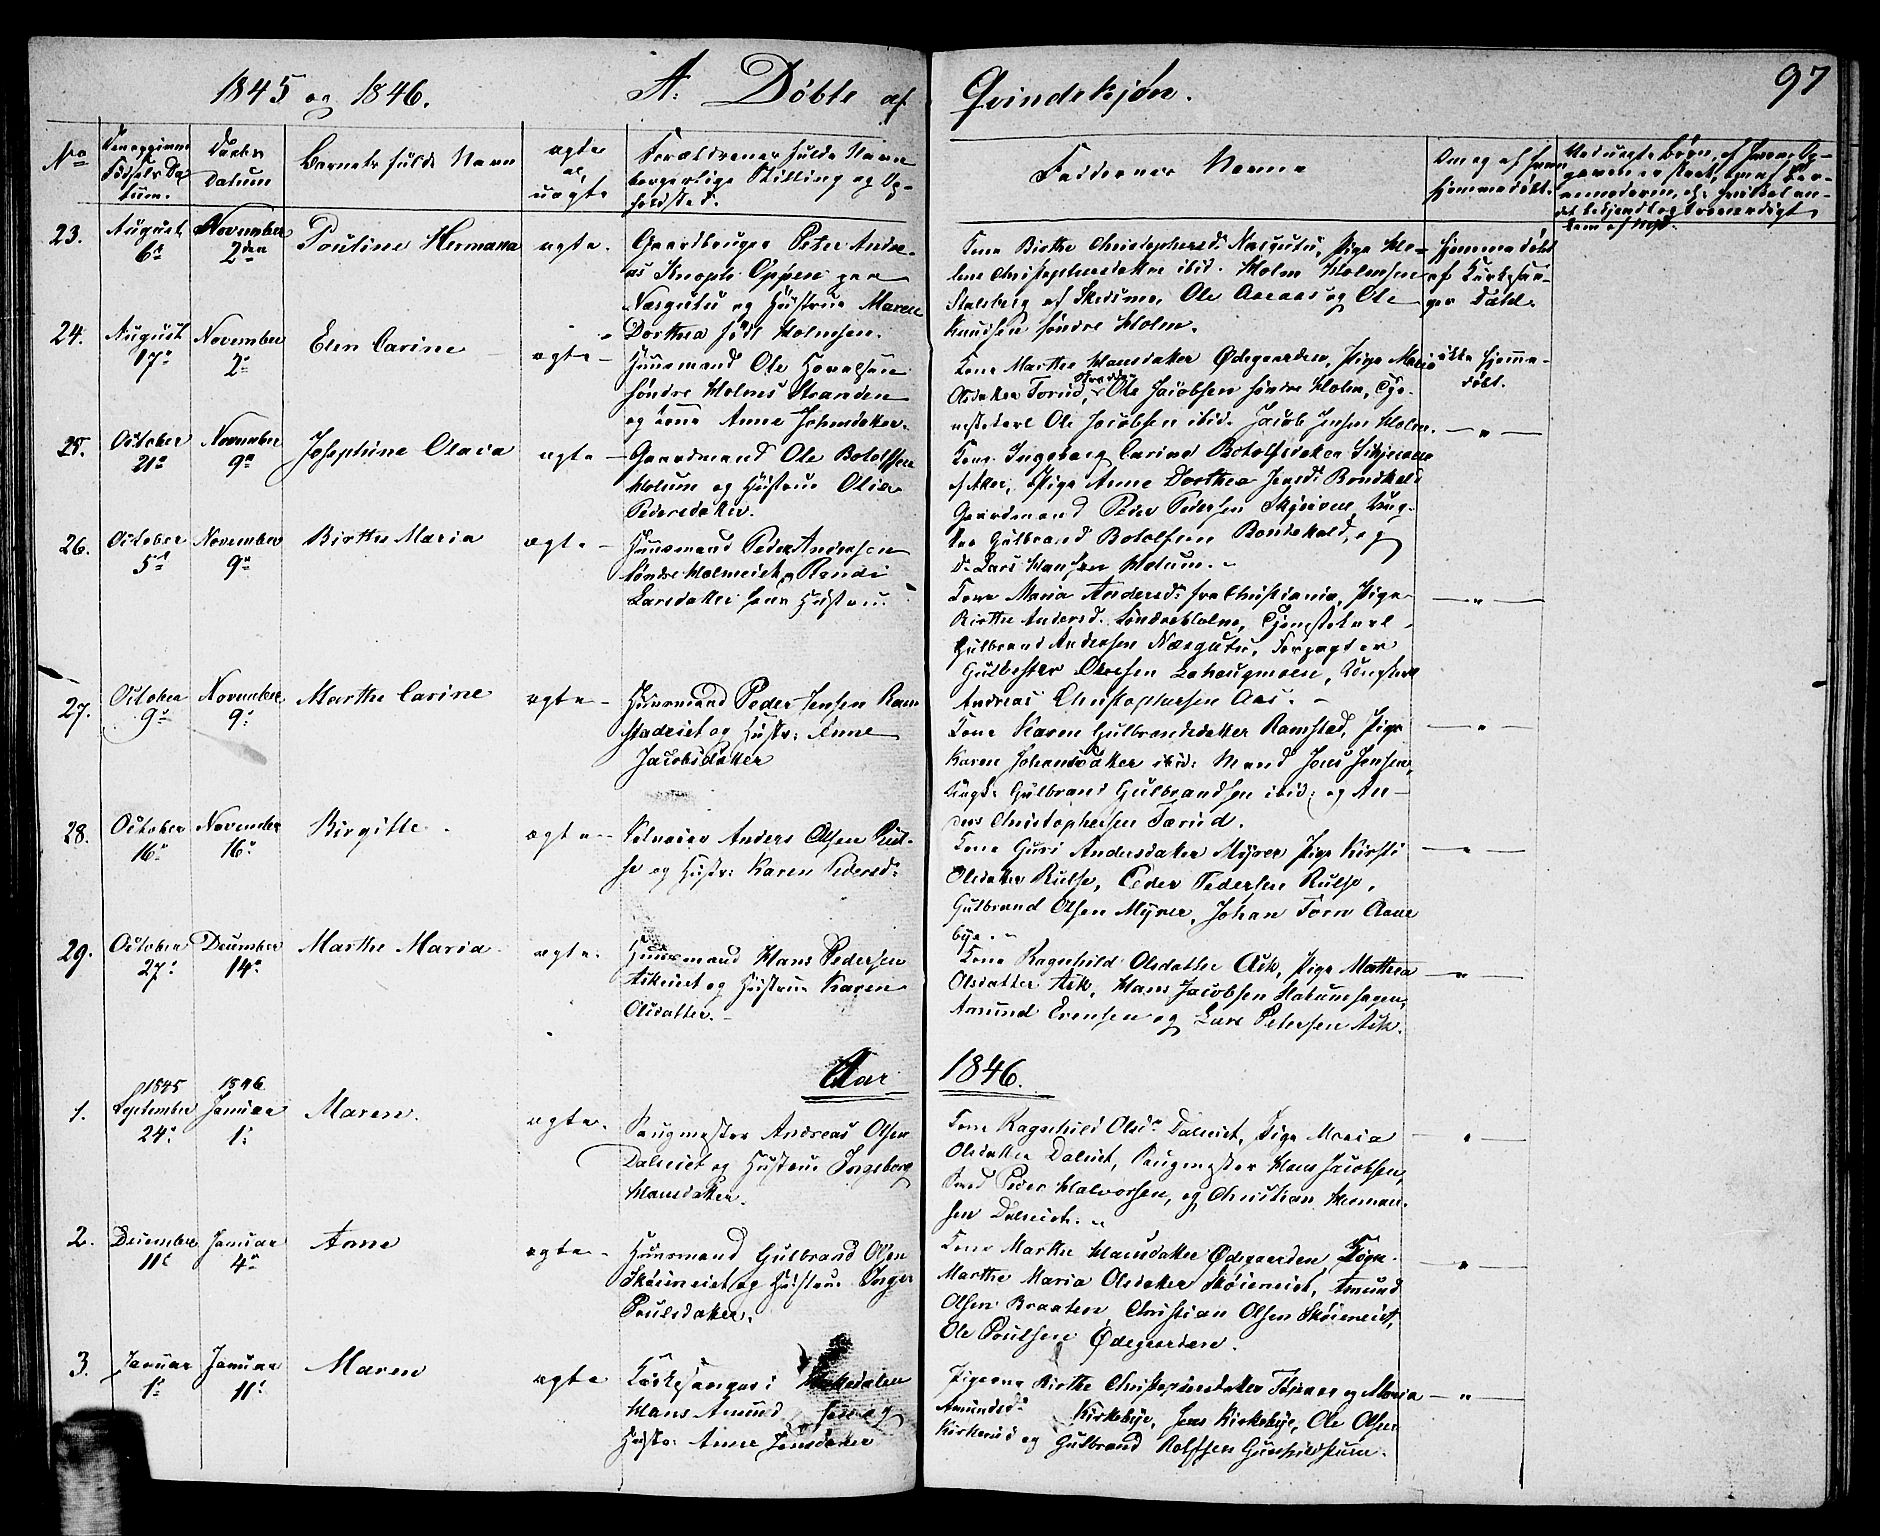 1845 og 1846. A. Døbte af Qvindekjøn. 97
No Den opgivne Fødsels Datum. Daabs Datum Barnets fulde Navn ægte el. uægte Forældrenes fulde Navn borgerlige Stilling og Opholdsted.
Faddernes Navne Om og af hvem hjemmedøbt.
23. August 6te November 2den Pauline Hermana ægte. Gaardbruger Peter Andreas Knoph Oppen paa
Næsgutu og Hustrue Maren
Dorthea født Holmsen.
Kone Birthe Christophersd. Næsgutu, Pige Helene
Christophersdatter ibid. Holm Holmsen
Stalsberg af Skedsmo, Ole Aaraas og Ole
Knudsen søndre Holm.
Hjemmedøbt
af Kirkesanger
24. August 17de November 2den Elen Carine ægte Huusmand Ole
søndre Holms Stranden
og Kone Anne Johnsdatter.
Kone Marthe Hansdatter Ødegaarden, Pige Marie
Olsdatter Torud, Ole Jacobsen søndre Holm, Tjenestekarl
Ole Jacobsen ibid. Jacob Jensen Holm.
ikke hjemmedøbt.
25. October 21de November 9de Josephine Olava ægte Gaardmand Ole Botolfsen
Holum og Hustrue Olia
Pedersdatter.
Kone Ingeborg Carine Botolfsdatter
af Aker, Pige Anne Dorthea Jensd.
Gaardmand Peder Pedersen
Gulbrand Botolfsen og
Do Lars Hansen Holum.
26. October 5te November 9de Birthe Maria ægte Huusmand Peder Andersen
søndre Holmeiet og Randi
Larsdatter hans Hustrue.
Kone Maria Andersd. fra Christiania, Pige
Birthe Andersd. Søndre Holm, Tjenestekarl
Gulbrand Andersen Næsgutu, Forpagter
Olsen Ungkarl
Andreas Christophersen Aas.
27. October 9de November 9de Marthe Carine ægte Huusmand Peder Jensen Ramstadeiet
og Hustr: Anne
Jacobsdatter
Kone Karen Gulbrandsdatter Ramstad, Pige
Karen Johansdatter ibid: Mand Jens Jensen,
Ungk: Gulbrand Gulbrandsen ibid: og Anders
Christophersen Tærud.
28. October 16de November 16de Birgitte ægte Selveier Anders Olsen Rulse
og Hustr: Karen Pedersd:
Kone Guri Andersdatter Myrer Pige Kirsti
Olsdatter Rulse, Peder Pedersen Rulse,
Gulbrand Olsen Myrer, Johan Torn Aanebye.
29. October 27de December 14de Marthe Maria ægte. Huusmand Hans Pedersen
Askeiet og Hustrue Karen
Olsdatter.
Kone Ragnhild Olsdatter Ask, Pige Mathea
Olsdatter Ask, Hans Jacobsen Holumhagen,
Amund Evensen og Lars Petersen Ask.
Aar 1846.
1. 1845 September 24de 1846 Januar 1ste Maren. ægte. Saugmester Andreas Olsen
Daleiet og Hustrue Ingeborg
Hansdatter.
Kone Ragnhild Olsdr Daleiet, Pige Maria
Olsdatter Daleiet, Saugmester Hans Jacobsen,
Peder Halvorsen, og Christian Hermansen
Daleiet.
2. December 11te Januar 4de Anne ægte Huusmand Gulbrand Olsen
Skøieneiet og Hustrue Inger
Poulsdatter.
Kone Marthe Hansdatter Ødegaarden, Pige
Marthe Maria Olsdatter Skøieneiet, Amund
Olsen Braaten, Christian Olsen Skøieneiet,
Ole Poulsen Ødegaarden.
3. Januar 1ste Januar 11te Maren ægte Kirkesanger i Hakedalen
Hans Amundsen og
Hustr: Anne Jensdatter
Pigerne Birthe Christophersdatter og Maria
Amundsdr Kirkebye, Jens Kirkebye, Ole Olsen
Kirkerud og Gulbrand Rolfsen